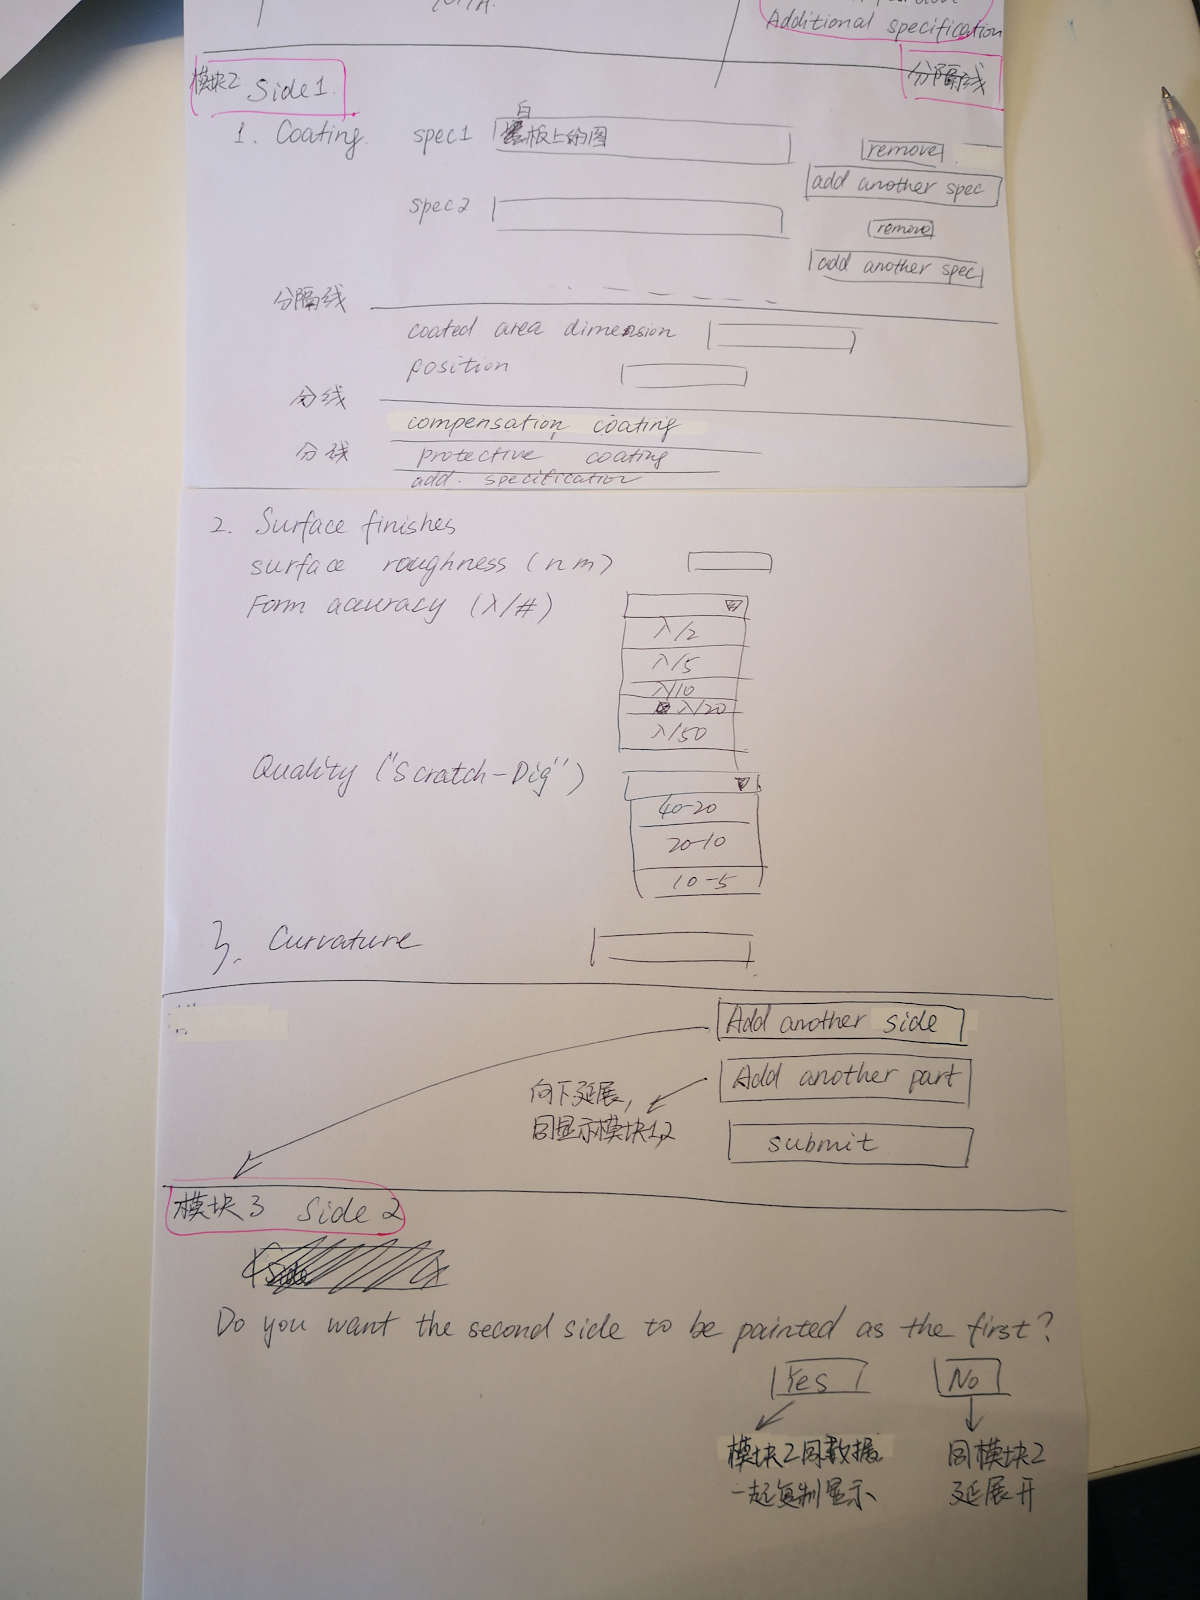 Additional specification
分隔线
模块2 Side1.
1. Coating spec1 白板上的图
remove
add another spec
spec2
remove
add another spec
分隔线
coated area dimension
position
分线
compensation coating
分线
protective coating
add. specification
2. Surface finishes
surface roughness (nm)
Form accuracy (λ/#)
λ/2
λ/5
λ/10
λ/20
λ/50
Quality ("Scratch-Dig")
40-20
20-10
10-5
3. Curvature
Add another side
Add another part
向下延展,
同显示模块1,2
submit
模块3 Side 2
Do you want the second side to be painted as the first?
Yes No
模块2同数据
一起复制显示
同模块2
延展开